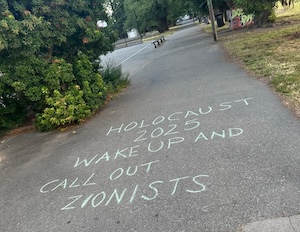 HOLOCAUST
2025
WAKE UP AND
CALL OUT
ZIONISTS